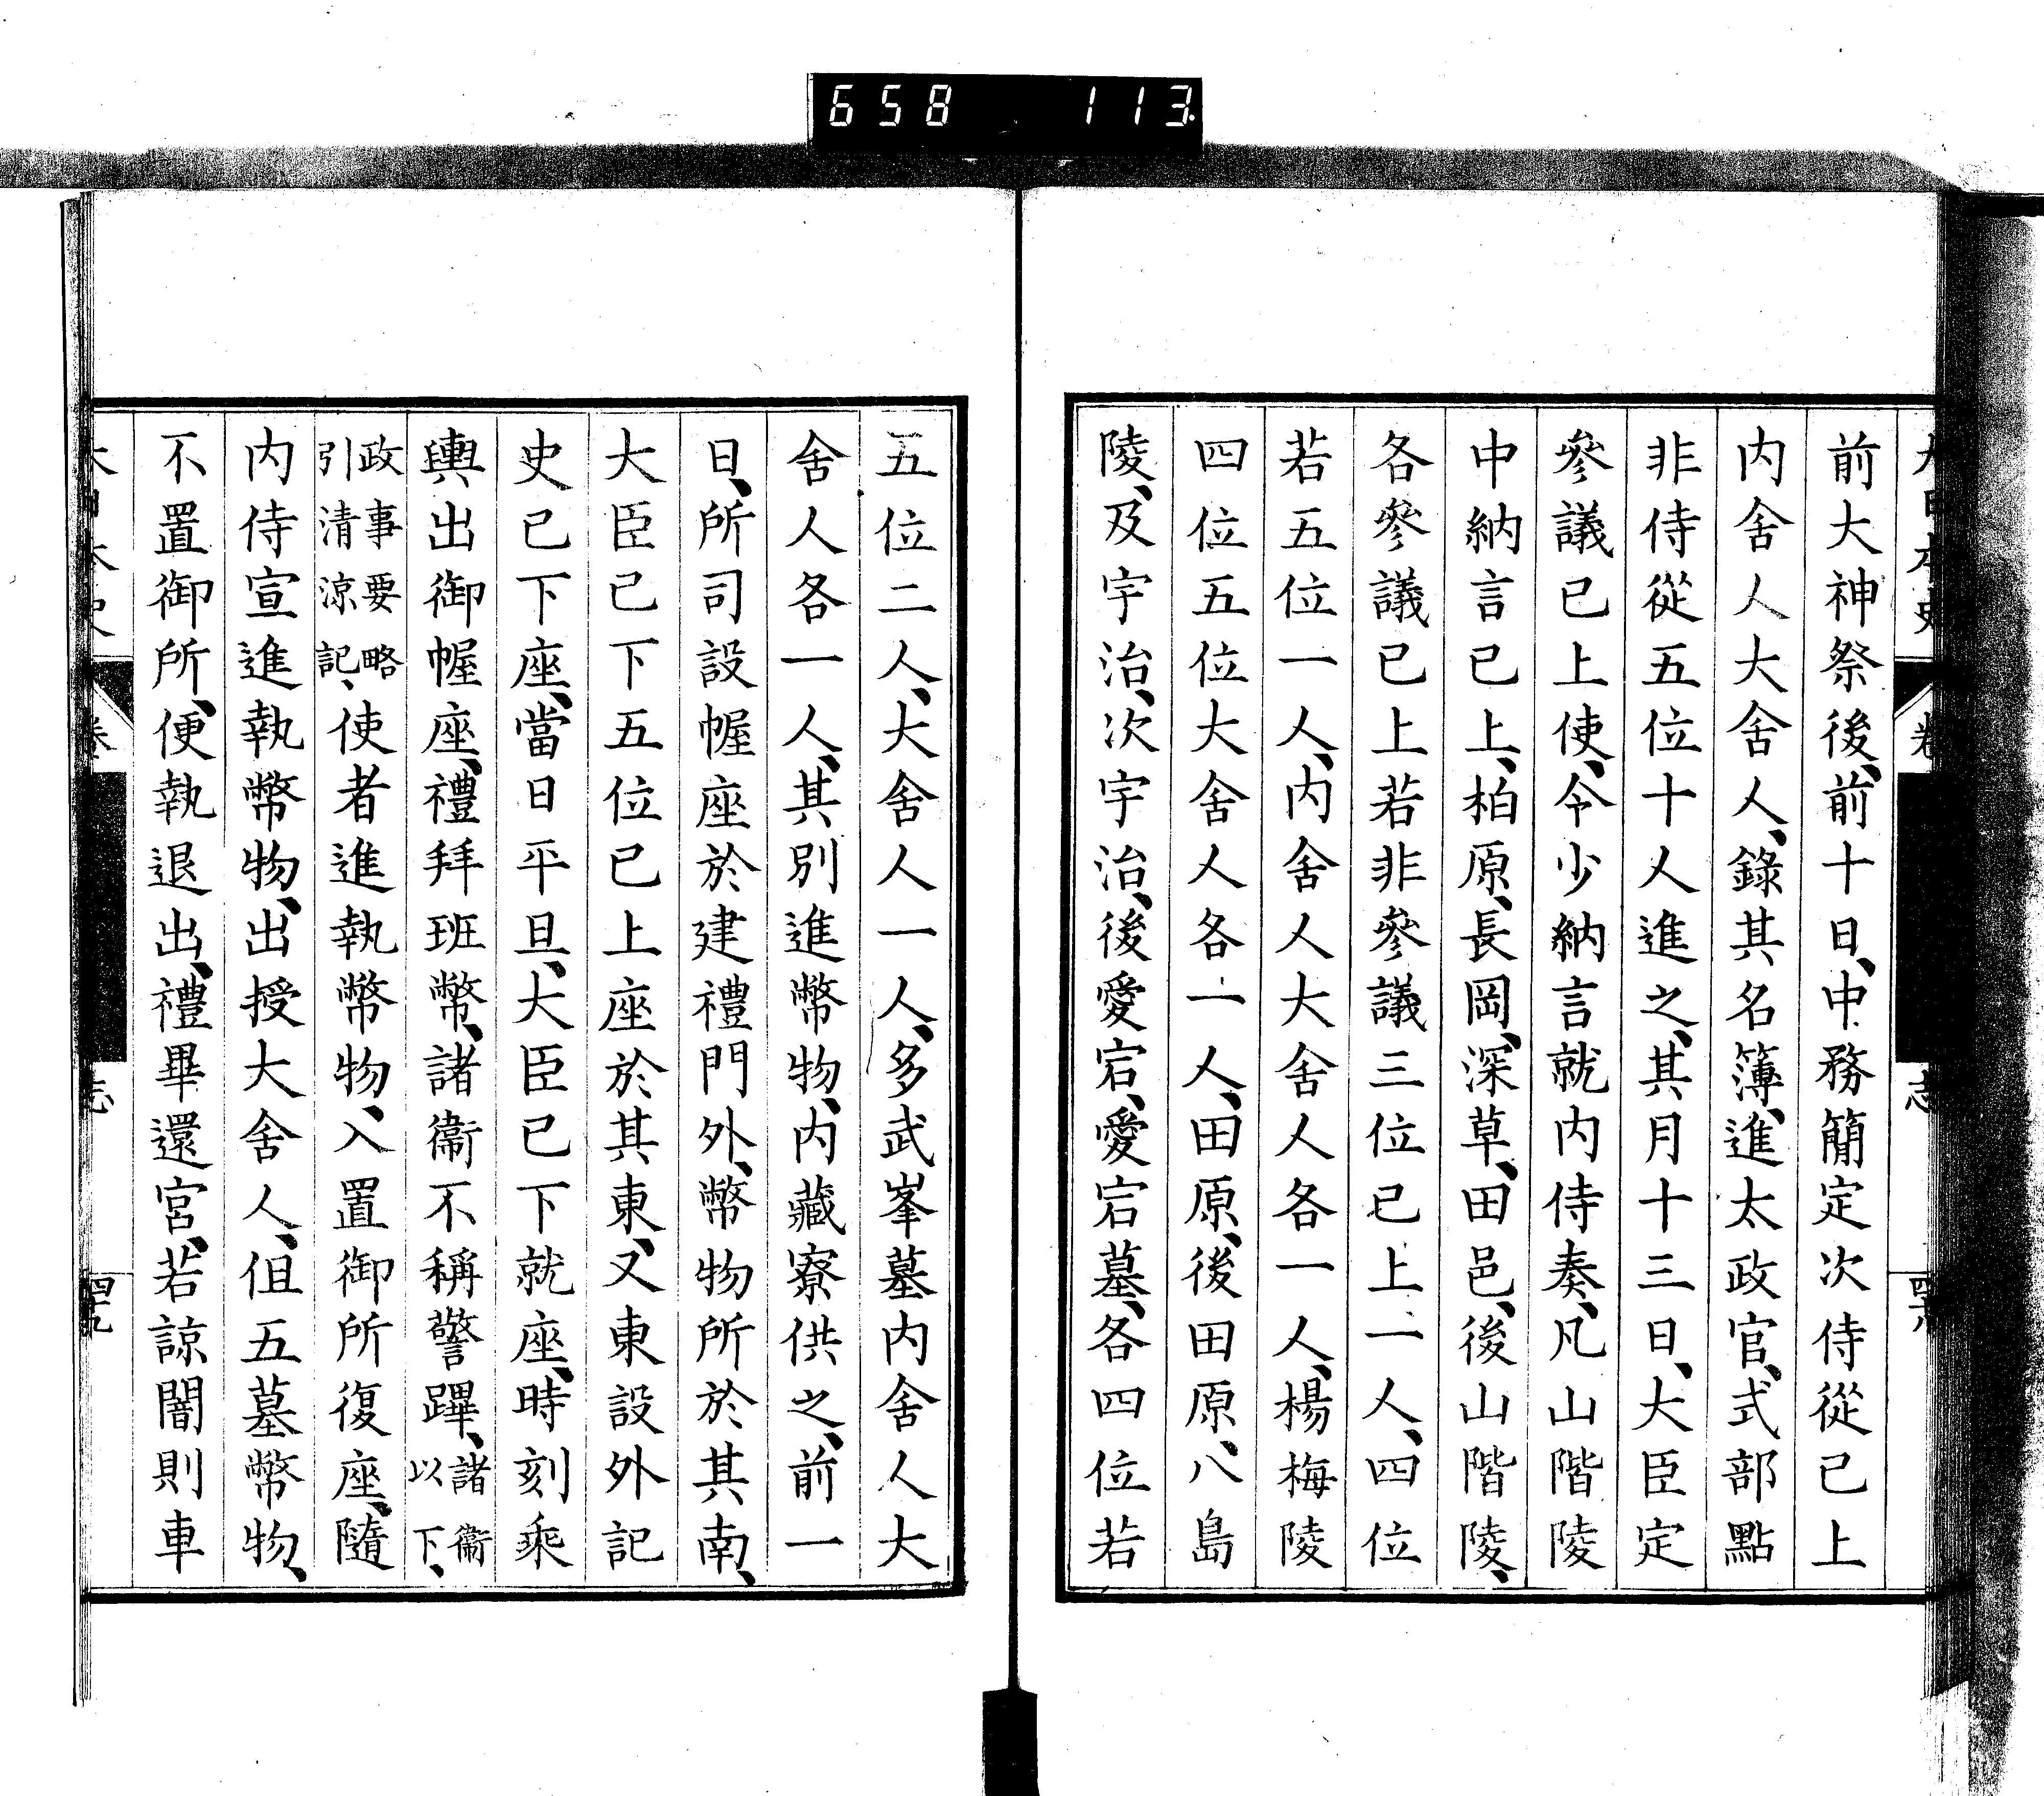 658 113
前大神祭後、前十日、中務簡定次侍從已上
内舍人大舍人、錄其名簿、進太政官、式部點
非侍從五位十人進之、其月十三日、大臣定
參議已上使、令少納言就内侍奏、凡山階陵
中納言已上、柏原、長岡、深草、田邑、後山階陵、
各參議已上若非參議三位已上一人、四位
若五位一人、内舍人大舍人各一人、楊梅陵
四位五位大舍人各一人、田原、後田原、八島
陵、及宇治、次宇治、後愛宕、愛宕墓、各四位若
五位二人、大舍人一人、多武峯墓内舍人大
舍人各一人、其別進幣物、内藏寮供之、前一
日、所司設幄座於建禮門外、幣物所於其南、
大臣已下五位已上座於其東、又東設外記
史已下座、當日平旦、大臣已下就座、時刻乘
輿出御幄座、禮拜班幣、諸衞不稱警蹕、諸衞以下、
政事要略引清涼記、使者進執幣物、入置御所復座、隨
内侍宣進執幣物、出授大舍人、但五墓幣物、
不置御所、便執退出、禮畢還宮、若諒闇則車
大日本史 卷 志 四十九